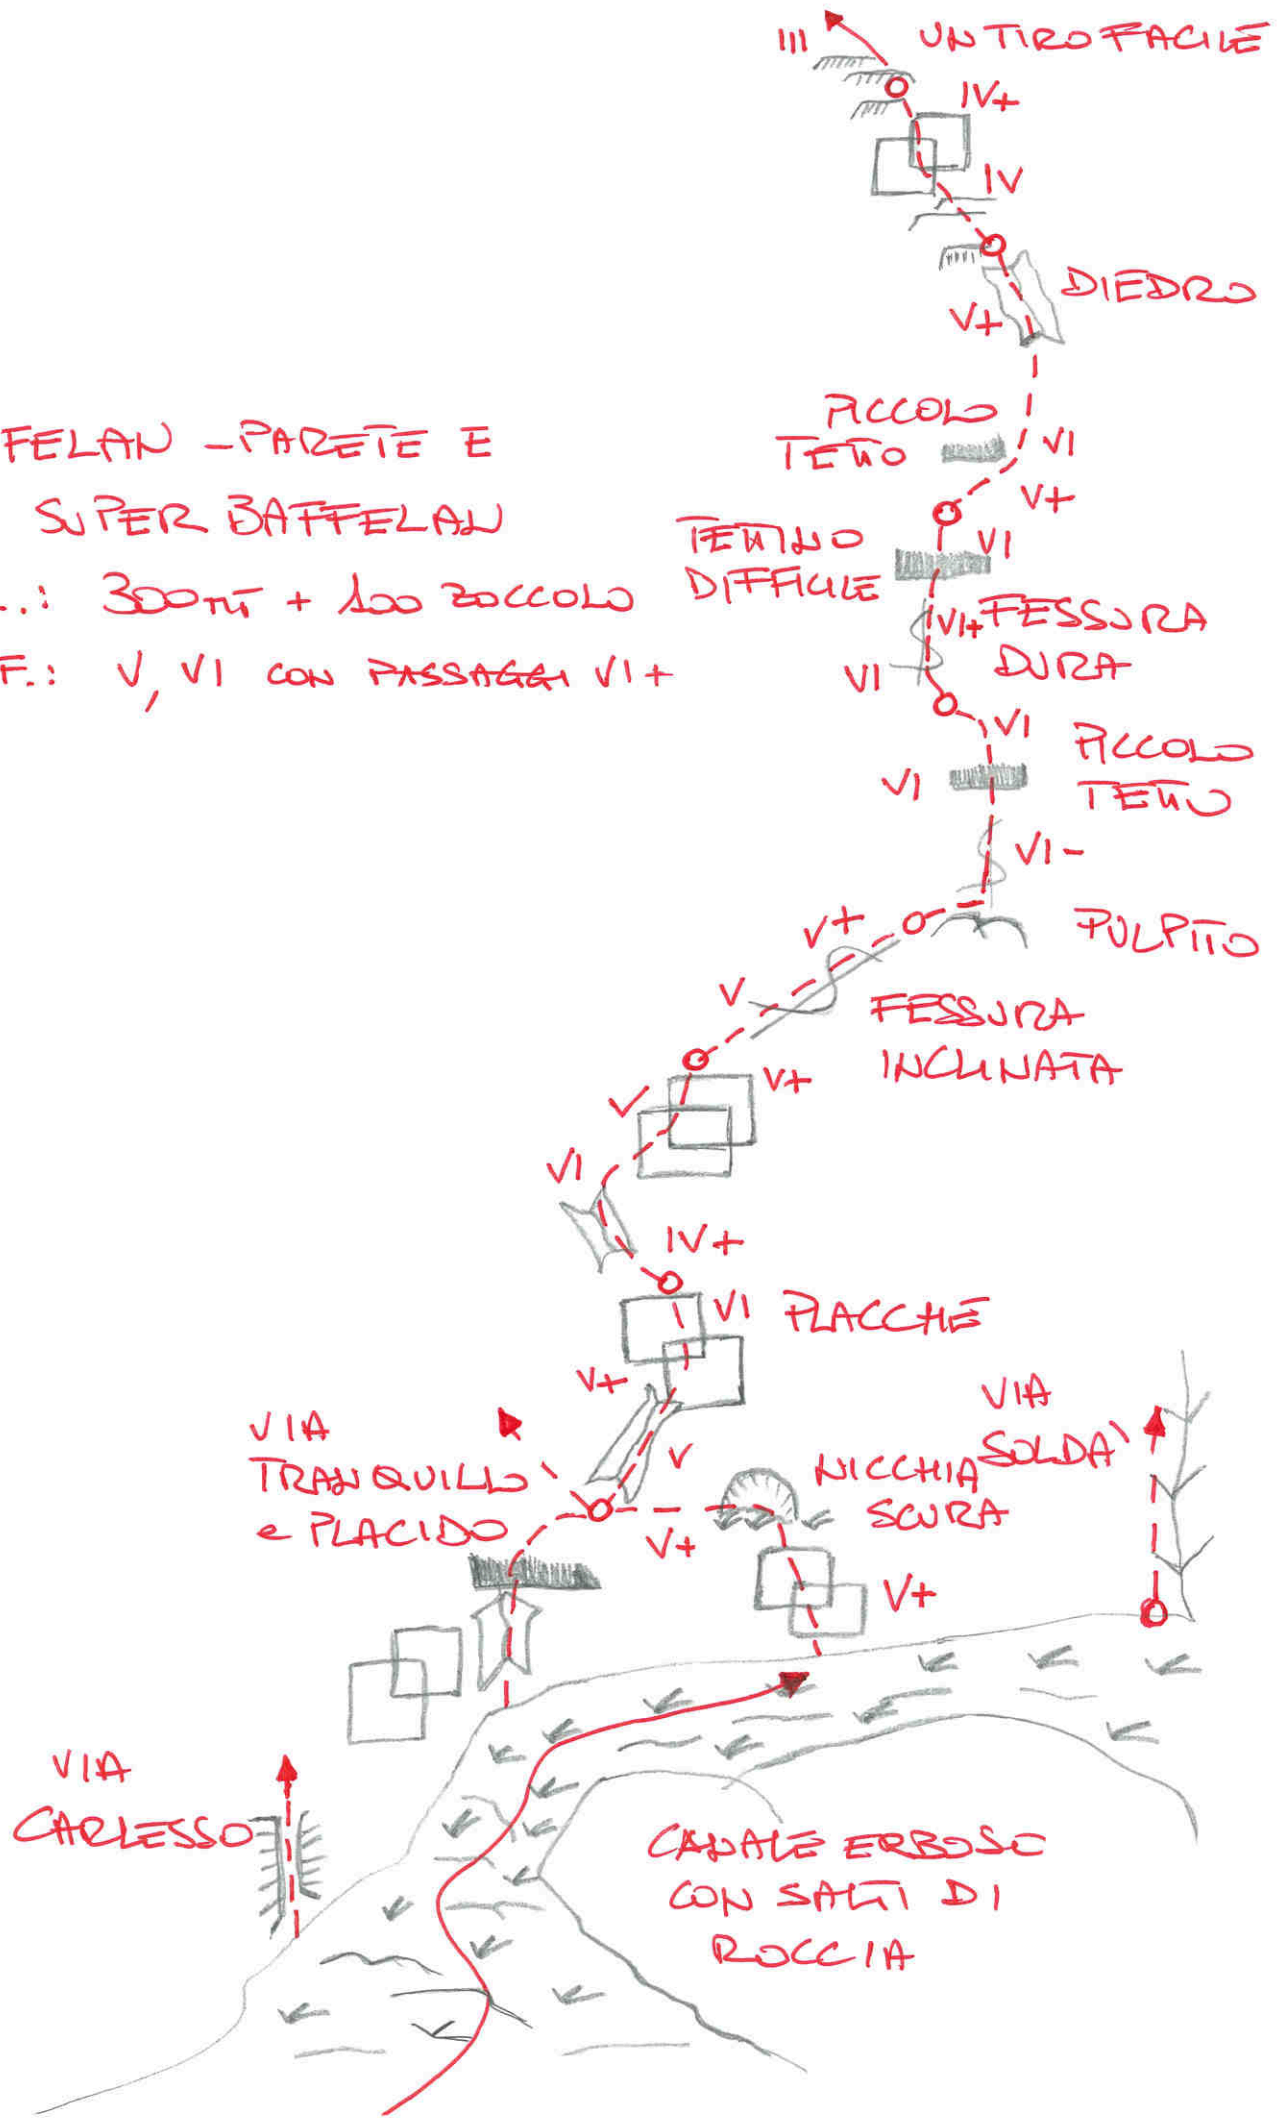 III UN TIRO FACILE
IV+
IV
DIEDRO
V+
PICCOLO
TETTO
VI
V+
FELAN - PARETE E
SUPER BAFFELAN
..: 300 mt + 100 ZOCCOLO
F.: V, VI CON PASSAGGI VI+
TETTINO
DIFFICILE
VI
VI+
FESSURA
DURA
VI
VI
PICCOLO
TETTO
VI
VI-
PULPITO
V+
V
FESSURA
INCLINATA
V+
V
VI
IV+
VI
PLACCHE
V+
VIA
TRANQUILLO
e PLACIDO
V
V+
NICCHIA
SCURA
V+
VIA
SOLDA'
VIA
CARLESSO
CANALE ERBOSO
CON SALTI DI
ROCCIA